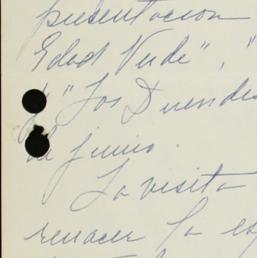 presentación
Edad Verde", "
y "Los Duendes
de junio.
La visita
renacer la es